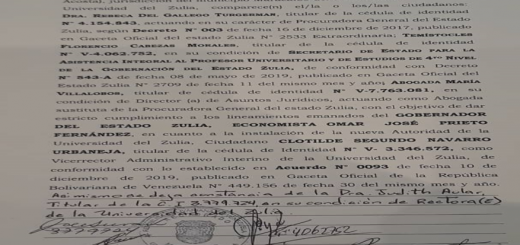 Zulia, compareció el/la o los/las ciudadanos:
DRA. REBECA DEL GALLEGO TUNGERMAN, titular de la cédula de identidad
N° 4.154.843, actuando en su carácter de Procuradora General del Estado
Zulia, según Decreto N° 003 de fecha 16 de diciembre de 2017, publicado
en Gaceta oficial del estado Zulia N° 2533 Extraordinaria; TEMÍSTOCLES
FLORENCIO CABEZAS MORALES, titular de la cédula de identidad
N° V-4.062.752, en su condición de SECRETARIO DE ESTADO PARA LA
ASISTENCIA INTEGRAL AL PROFESOR UNIVERSITARIO Y DE ESTUDIOS DE 4TO NIVEL
DE LA GOBERNACIÓN DEL ESTADO ZULIA, de conformidad con Decreto
N° 543-A de fecha 08 de mayo de 2019, publicado en Gaceta Oficial del
Estado Zulia N° 2709 de fecha 11 del mismo mes y año, ABOGADA MARÍA
VILLALOBOS, titular de cédula de identidad N° V-7.763.081, en su
condición de Director (a) de Asuntos Jurídicos, actuando como Abogada
sustituta de la Procuradora General del estado Zulia, con el objetivo de dar
estricto cumplimiento a los lineamientos emanados del GOBERNADOR
DEL ESTADO ZULIA, ECONOMISTA OMAR JOSÉ PRIETO
FERNÁNDEZ, en cuanto a la instalación de la nueva Autoridad de la
Universidad del Zulia, Ciudadano CLOTILDE SEGUNDO NAVARRO
URBANEJA, titular de la cédula de identidad N° V- 3.346.572, como
Vicerrector Administrativo Interino de la Universidad del Zulia, de
conformidad con lo establecido en Acuerdo N° 0093 de fecha 10 de
diciembre de 2019, publicado en Gaceta Oficial de la República
Bolivariana de Venezuela N° 449.156 de fecha 30 del mismo mes y año.
Asimismo se deja constancia de la Dra Judith Aular
Titular de la C I 3777724, en su condición de Rectora(E)
de la Universidad del Zulia